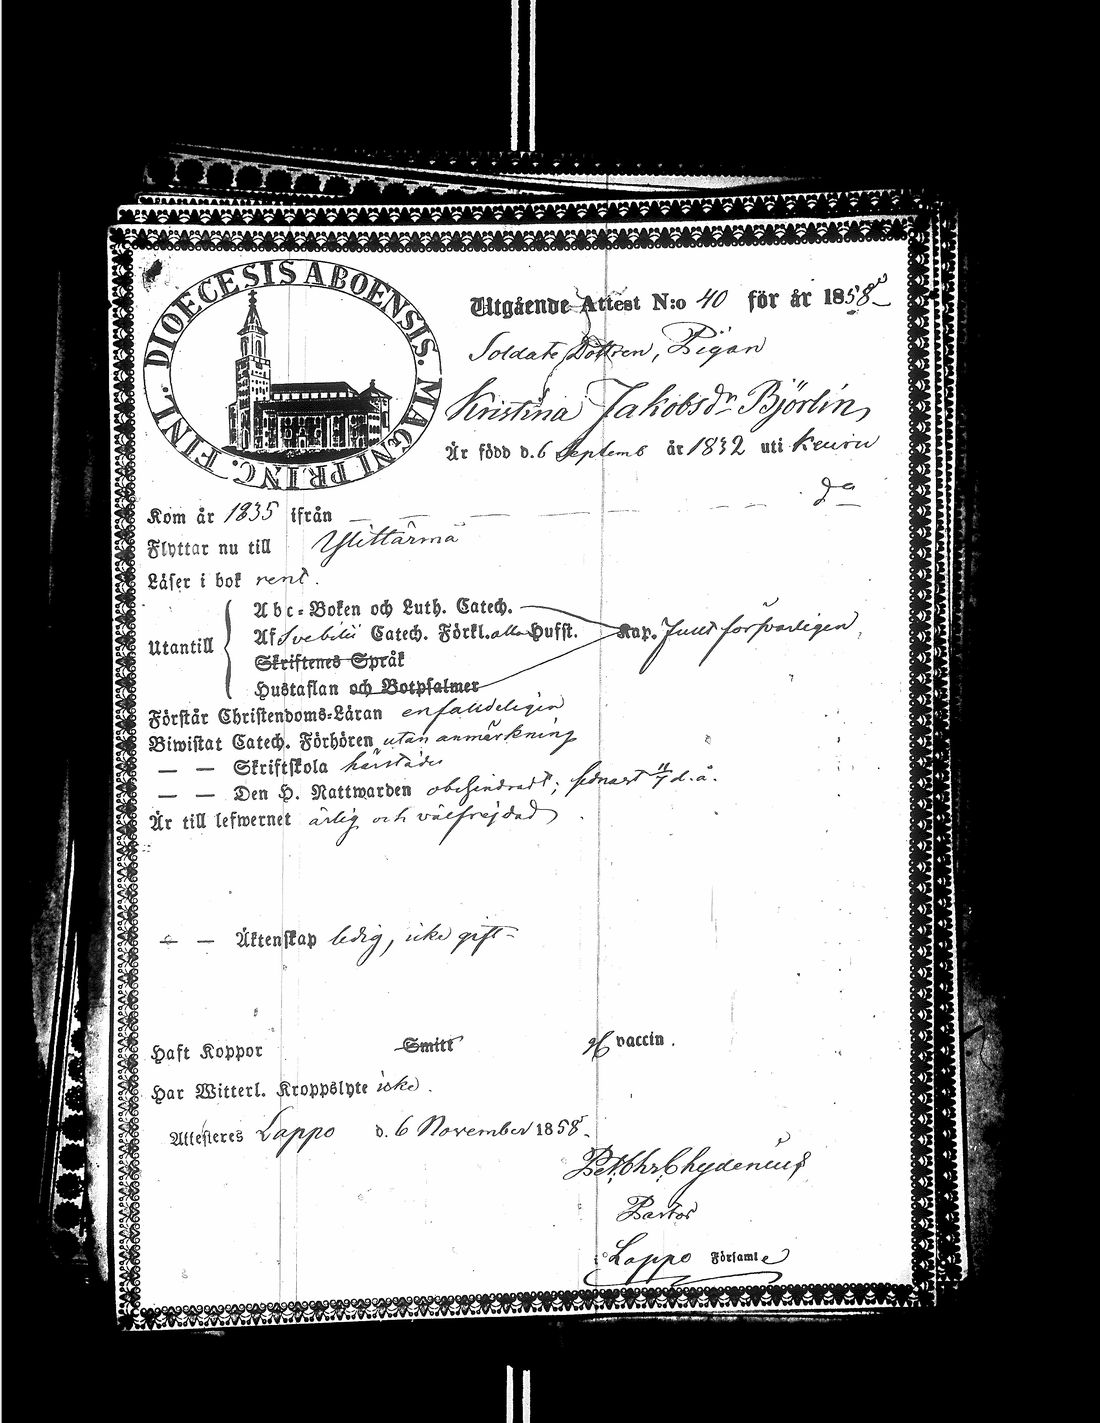 DIOECESIS ABOENSIS. MAGNI PRINC. FINL.
Utgående Attest N:o 40 för år 1858
Soldats Dottren, Pigan
Kristina Jakobsdr Björlin,
Är född d. 6 Septemb år 1832 uti Keuru
Kom år 1835 ifrån — — — — — — — do
Flyttar nu till Ylittärmä
Läser i bok rent.
Utantill
Abc-Boken och Luth. Catech.
Af Svebilii Catech. Förkl. alla Hufst. Kap. Just försvarligen
Skriftenes Språk
Hustaflan och Botpsalmer
Förstår Christendoms-Läran enfaldeligen
Biwistat Catech. Förhören utan anmärkning
— — Skriftskola härstädes
— — Den H. Nattwarden obehindradt; sednast 11/7 d. å.
Är till lefwernet ärlig och välfrejdad
— — Äktenskap ledig, icke gift
Haft Koppor Smitt vaccin.
Har Witterl. Kroppslyte icke.
Attesteres Lappo d. 6 November 1858.
Pet. Chr. Chydenius
Pastor
i Lappo Församl